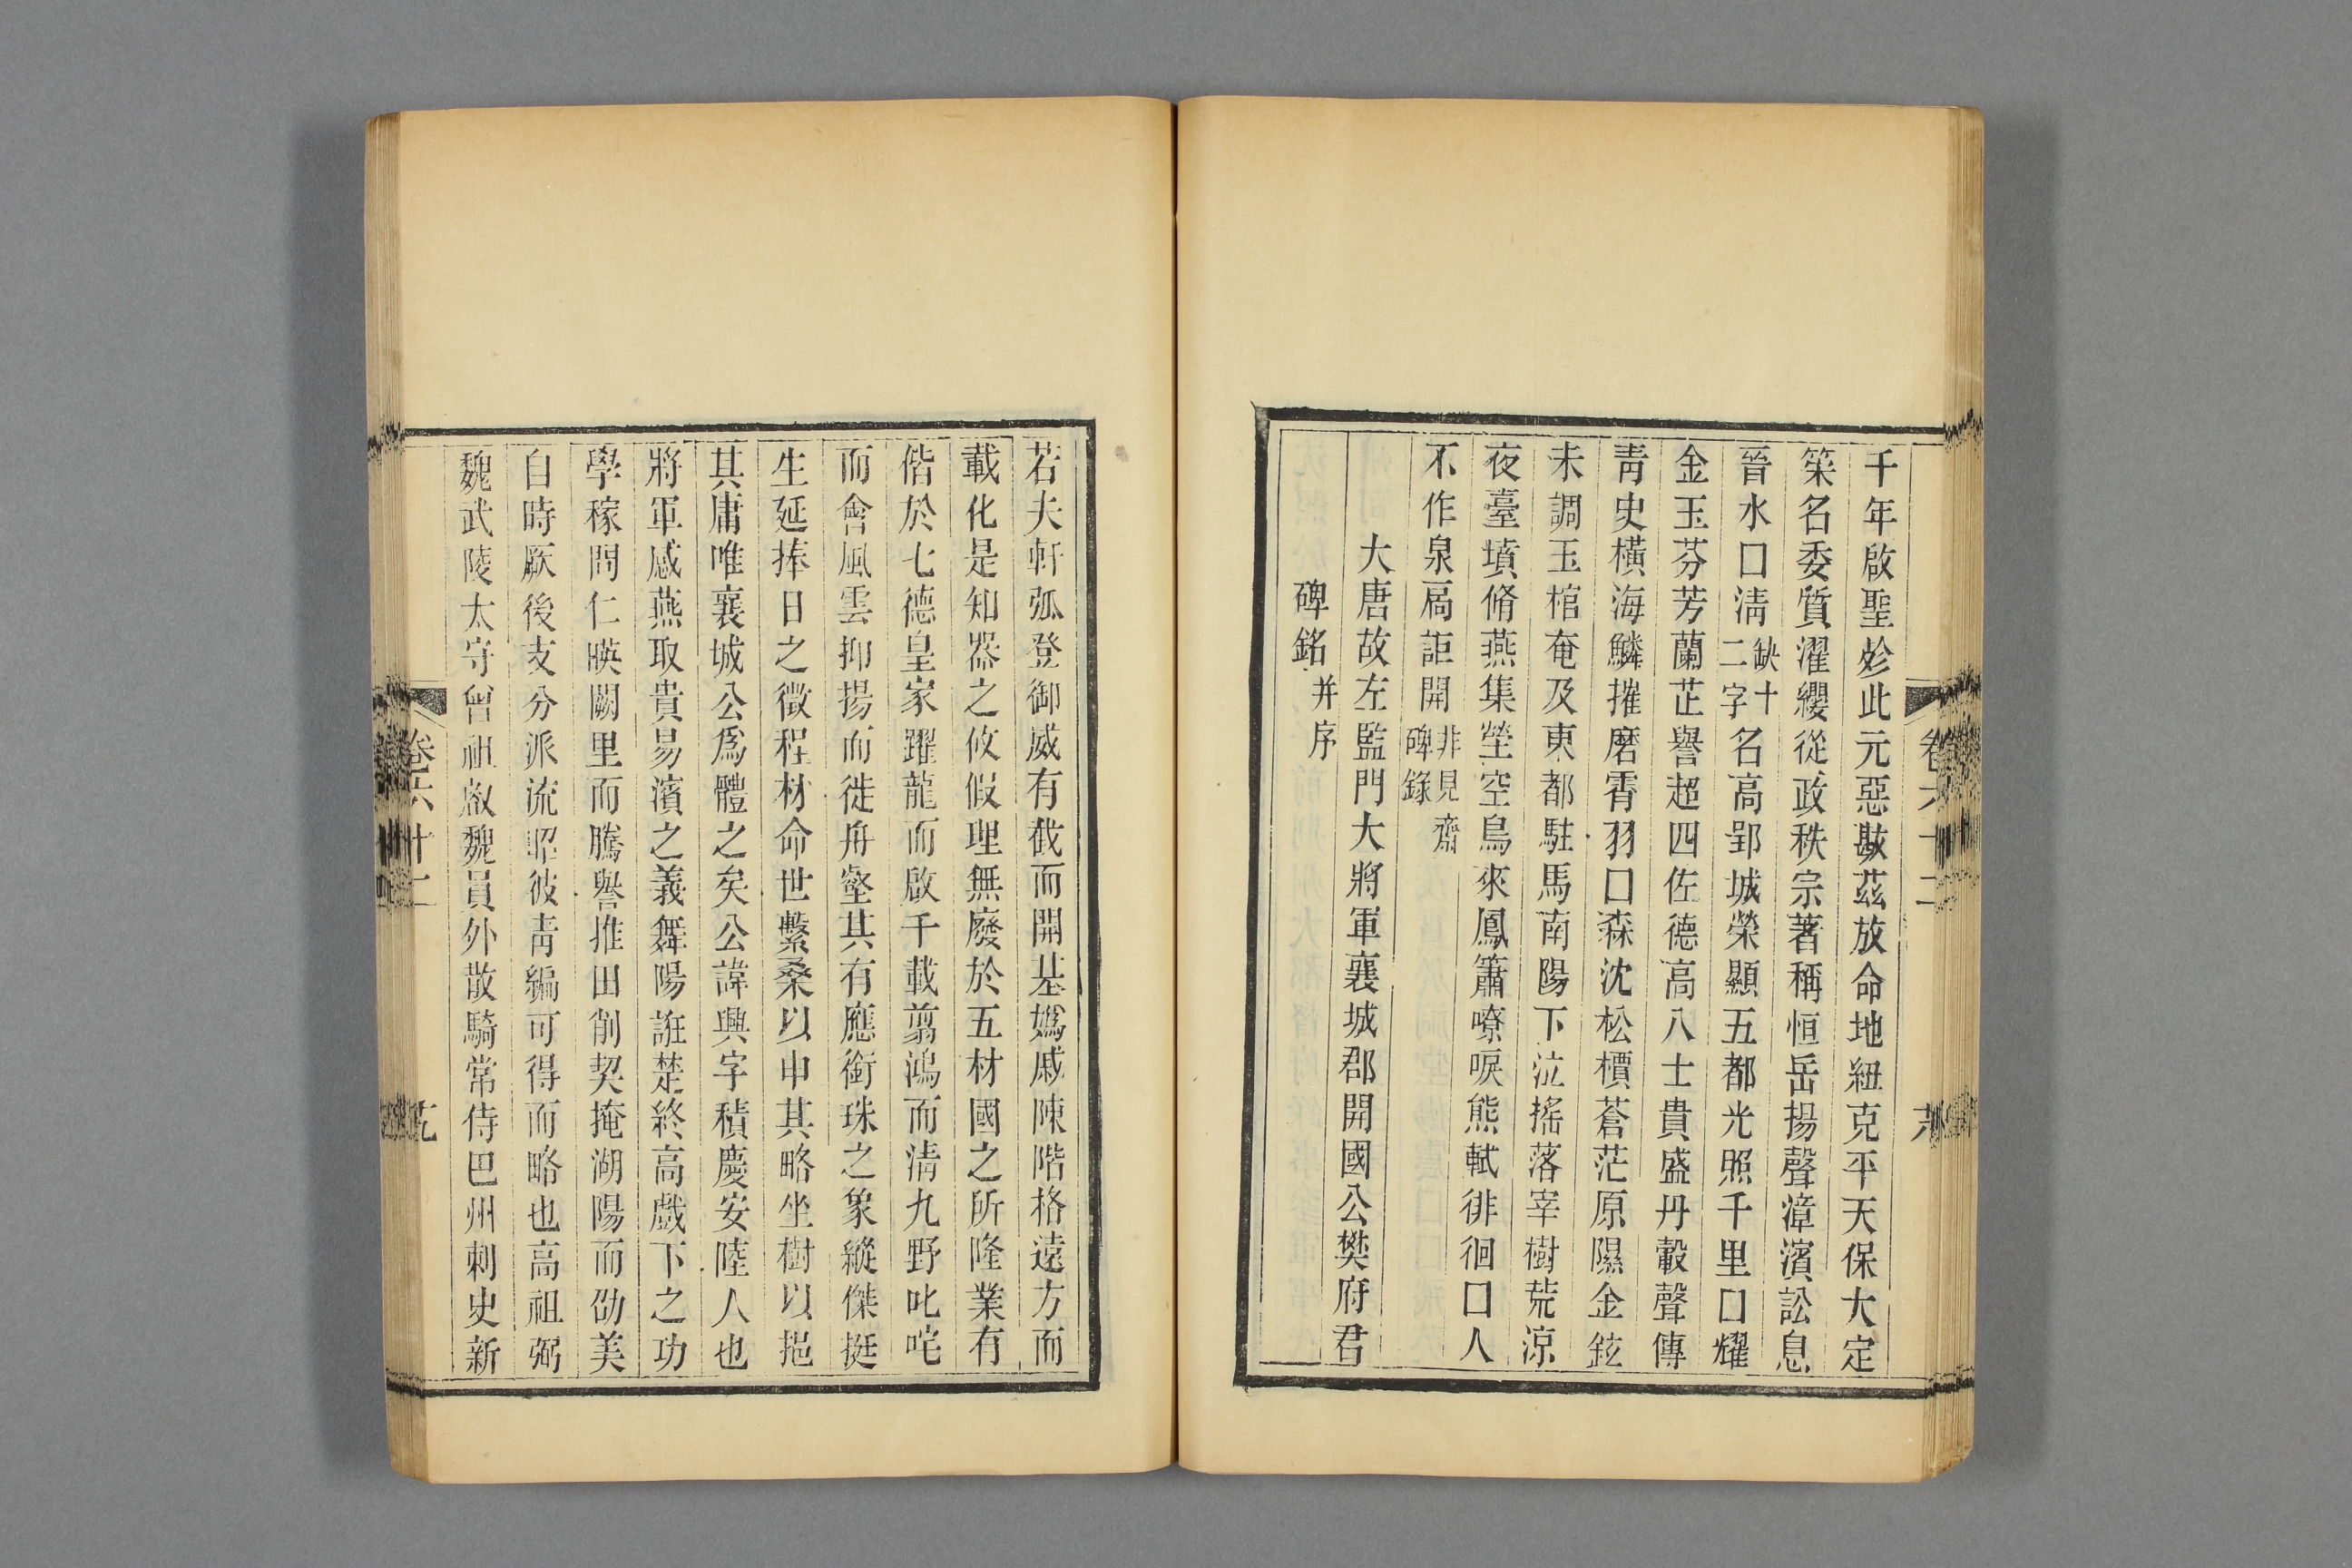 千年啟聖夢此元惡戡茲放命地紐克平天保大定
筞名委質濯纓從政秩宗著稱恒岳揚聲漳濱訟息
晉水口淸缺十二字名高郢城榮顯五都光照千里口耀
金玉芬芳蘭芷譽超四佐德高八士貴盛丹轂聲傳
靑史橫海鱗摧磨霄羽口森沈松檟蒼茫原隰金鉉
未調玉棺奄及東都駐馬南陽下泣搖落宰樹荒涼
夜臺墳脩燕集塋空鳥來鳳簫嘹唳熊軾徘徊口人
不作泉扃詎開非見齋碑錄
大唐故左監門大將軍襄城郡開國公樊府君
碑銘并序
若夫軒弧登御威有截而開基嬀戚陳階格遠方而
載化是知器之攸假理無廢於五材國之所隆業有
偕於七德皇家躍龍而啟千載翦鴻而淸九野叱咤
而會風雲抑揚而徙舟壑其有應銜珠之象縱傑挺
生延捧日之徵程材命世繫桑以申其略坐樹以挹
其庸唯襄城公爲體之矣公諱興字積慶安陸人也
將軍感燕取貴易濱之義舞陽誑楚終高戲下之功
學稼問仁暎闕里而騰譽推田削契掩湖陽而劭美
自時厥後支分派流昭彼靑編可得而略也高祖弼
魏武陵太守曾祖敵魏員外散騎常侍巴州刺史新
卷六十二